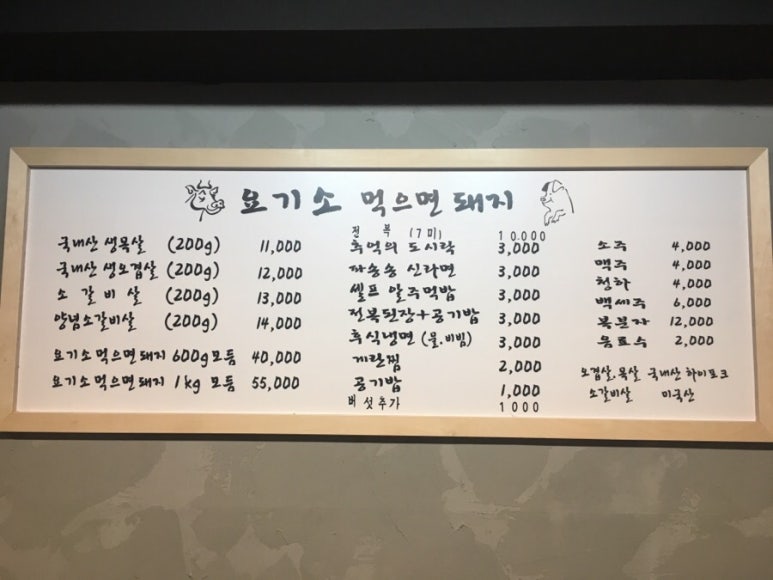 요기소 먹으면 돼지
국내산 생목살 (200g) 11,000
국내산 생오겹살 (200g) 12,000
소 갈비살 (200g) 13,000
양념소갈비살 (200g) 14,000
요기소먹으면돼지 600g모듬 40,000
요기소먹으면돼지 1kg 모듬 55,000
전 복 (7미) 10.000
추억의 도시락 3,000
파송송 신라면 3,000
셀프 알주먹밥 3,000
전복된장+공기밥 3,000
후식냉면 (물.비빔) 3,000
계란찜 2,000
공기밥 1,000
버섯추가 1000
소주 4,000
맥주 4,000
청하 4,000
백세주 6,000
복분자 12,000
음료수 2,000
오겹살,목살 국내산 하이포크
소갈비살 미국산